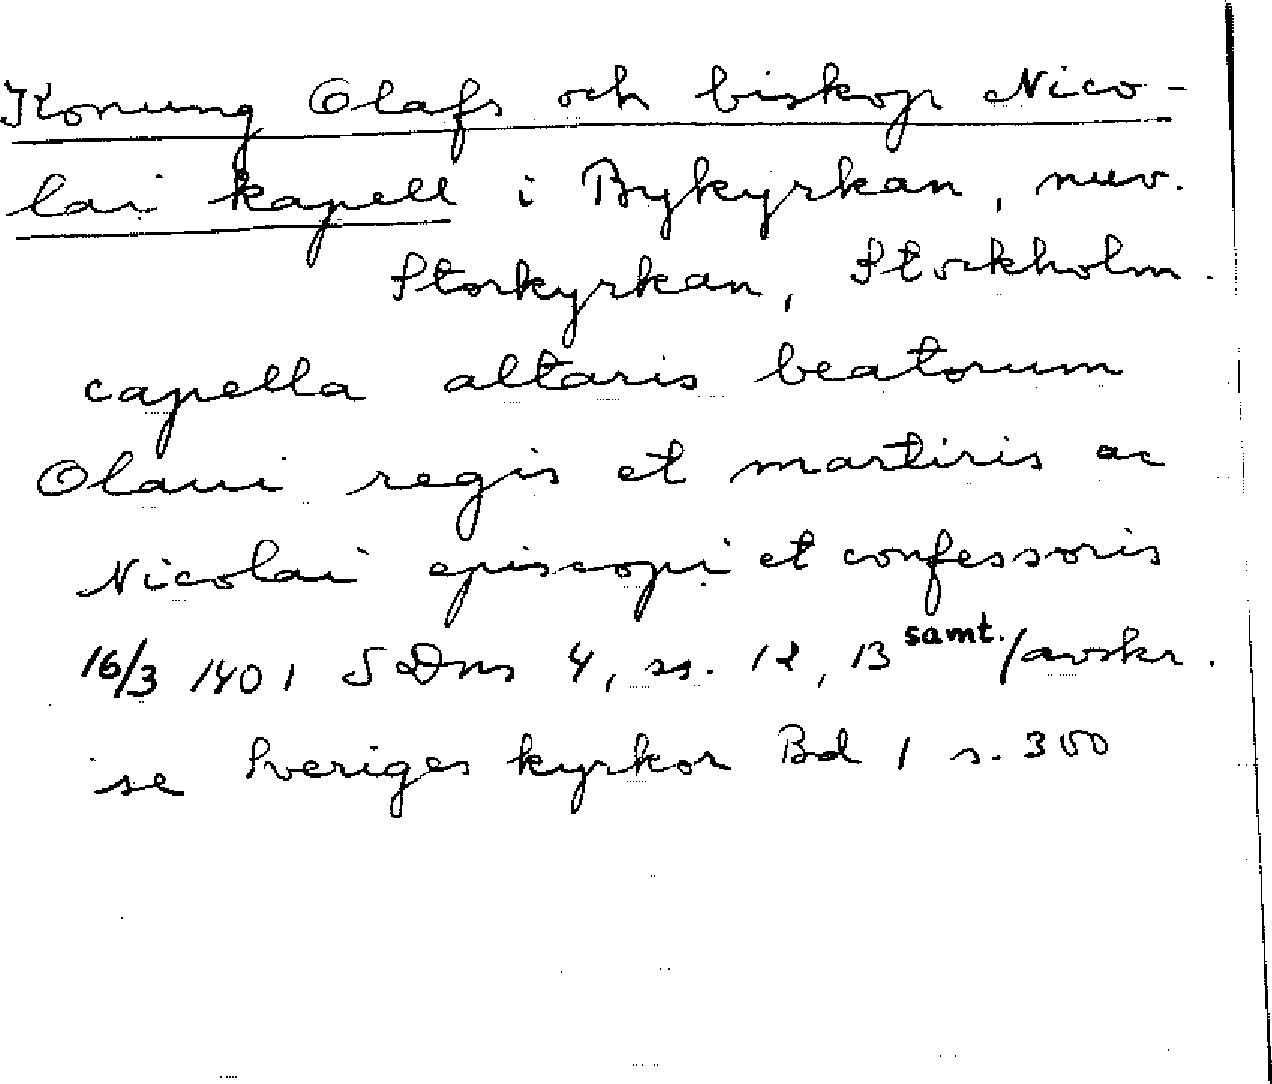 Konung Olafs och biskop Nico-
lai kapell i Bykyrkan, nuv.
Storkyrkan, Stockholm.
capella altaris beatorum
Olaui regis et martiris ac
Nicolai episcopi et confessoris
16/3 1401 SDns 4, ss. 12, 13 samt. /avskr.
se Sveriges kyrkor Bd 1 s. 300